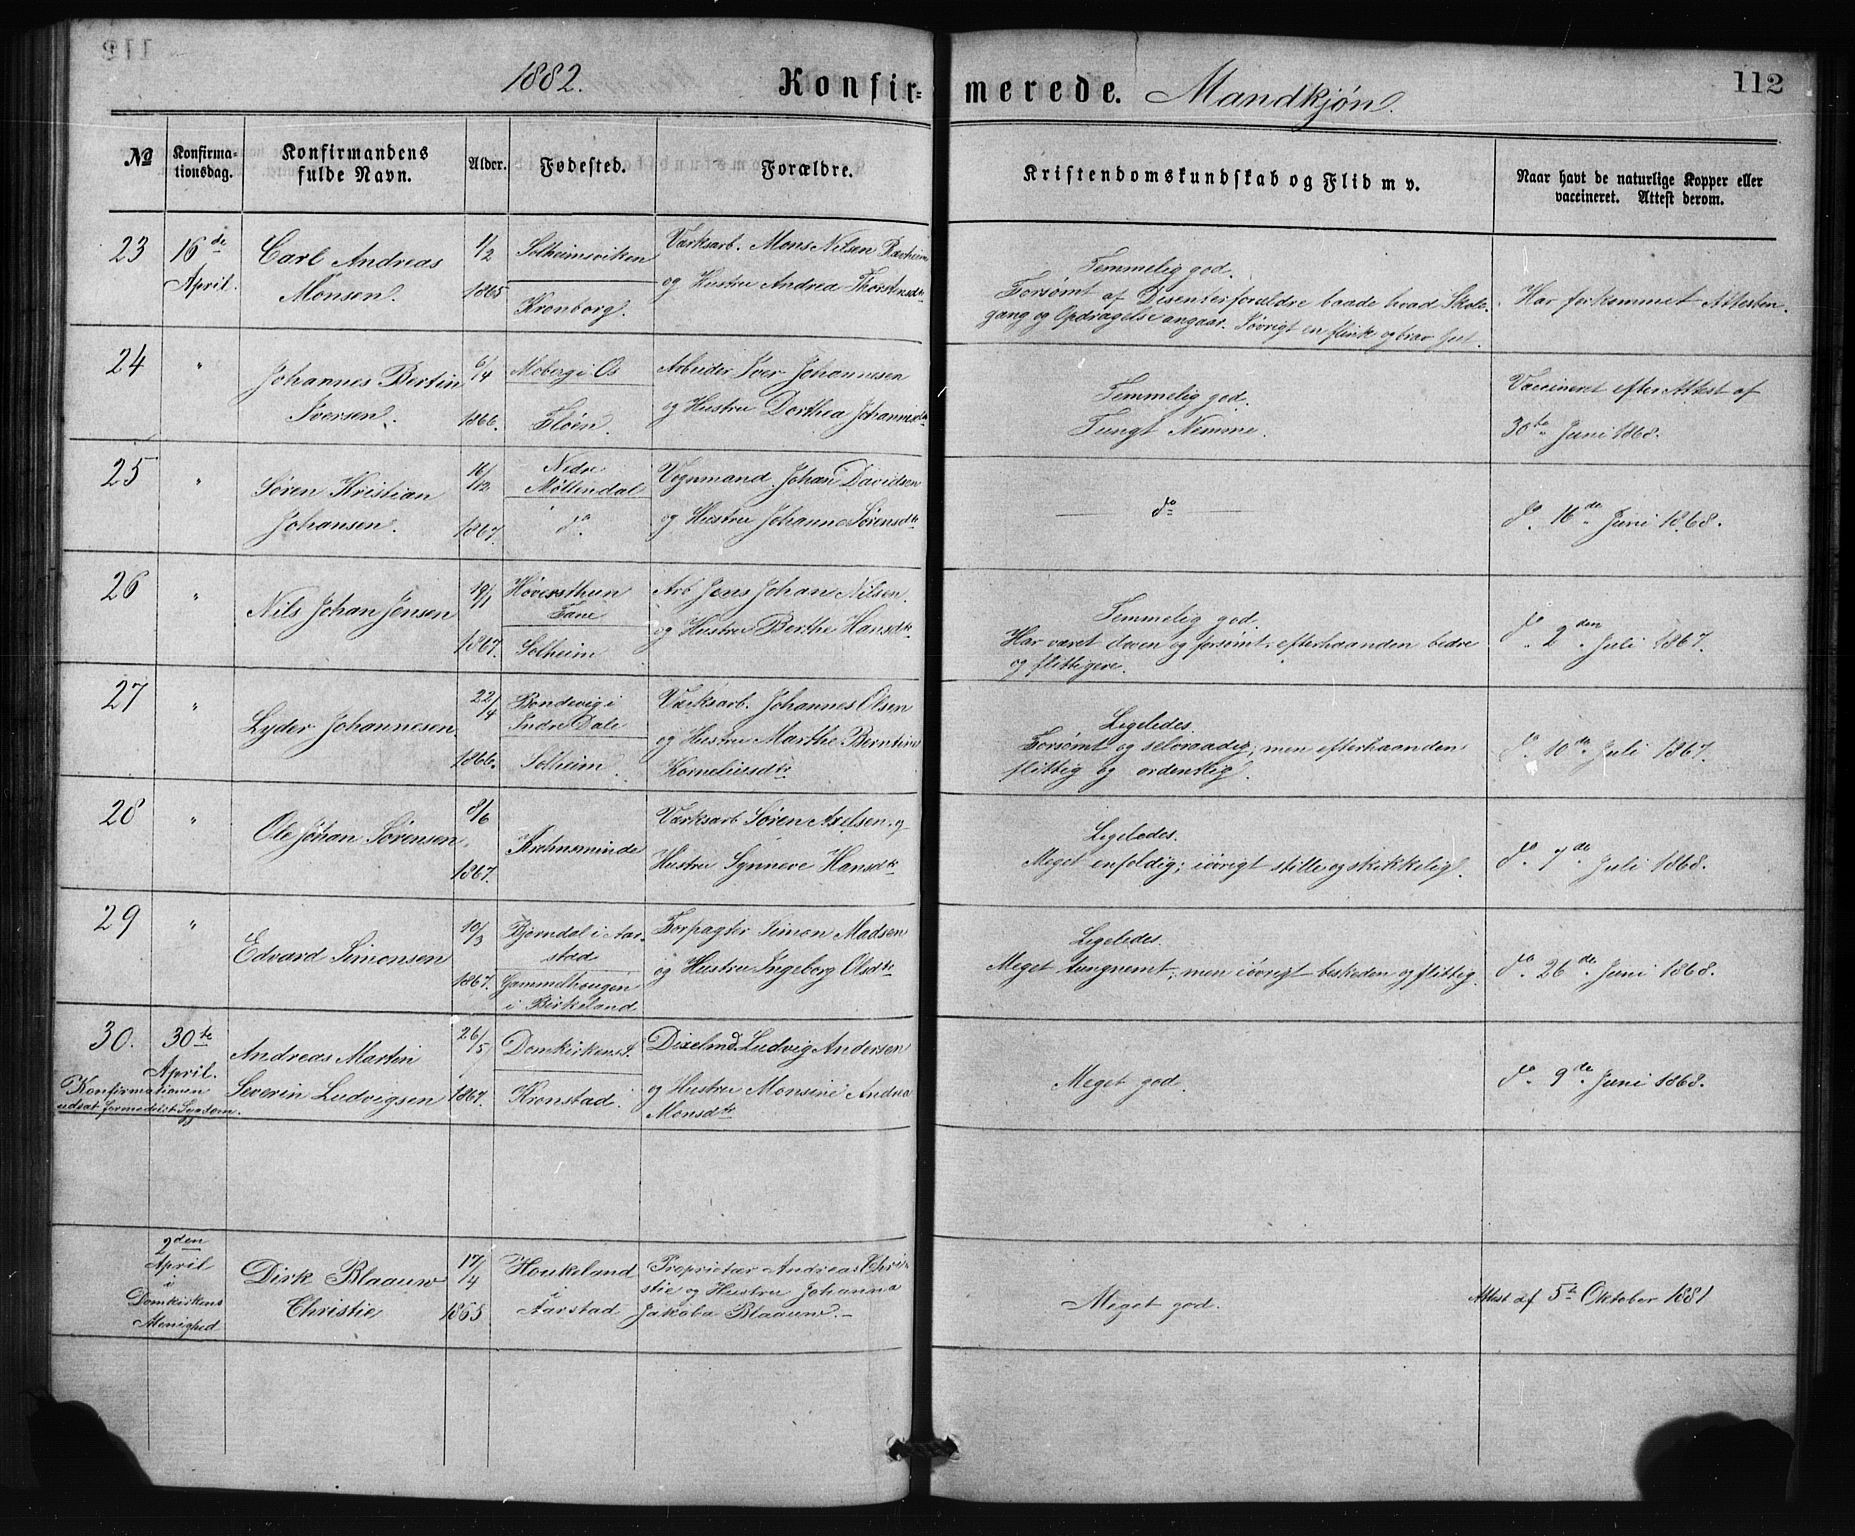 1882. Konfirmerede. Mandkjøn. 112
No
Konfirmationsdag.
Konfirmandens fulde Navn.
Alder.
Fødested.
Forældre.
Kristendomskundskab og Flid m v.
Naar havt de naturlige Kopper eller vaccineret. Attest derom.
23
16de
April.
Carl Andreas
Monsen.
1/2
1865
Solheimsviken
Kronborg.
Værksarb. Mons Nilsen
og Hustru Andrea Thorstensdtr
Temmelig god.
Forsømt af Disenterforældre baade hvad Skole-
gang og Opdragelse angaar. Iøvrigt en flink og brav Gut.
Har forkommet Attesten.
24
"
Johannes Bertin
Iversen.
6/4
1866.
Moberg i Os
Fløen.
Arbeider Iver Johannesen
og Hustru Dorthea Johannesdtr
Temmelig god.
Tungt Nemme.
Vaccineret efter Attest af
30te Juni 1868.
25
"
Søren Kristian
Johansen.
16/12
1867.
Nedre
Møllendal
do.
Vognmand Johan Davidsen
og Hustru Johanne Sørensdtr
do
do. 16de Juni 1868.
26
"
Nils Johan Jensen
19/1
1867.
Høversthun
Fane
Solheim
Arb Jens Johan Nilsen.
og Hustru Berthe Hansdtr
Temmelig god.
Har været doven og forsømt, efterhaanden bedre
og flittigere.
do. 2den Juli 1867.
27
"
Lyder Johannesen
22/4
1866.
Bondevig i
Indre Dale
Solheim
Værksarb. Johannes Olsen
og Hustru Marthe Berntine
Korneliusdtr
Ligeledes.
Forsømt og selvraadig, men efterhaanden
flittig og ordentlig.
do. 10de Juli 1867.
28
"
Ole Johan Sørensen
8/6
1867.
Krohnsminde
Værksarb Søren Axelsen og
Hustru Synneve Hansdtr
Ligeledes.
Meget enfoldig; iøvrigt stille og skikkelig.
do. 7de Juli 1868.
29
"
Edvard Simonsen
10/3
1867.
Bjørndal i Aar-
stad
Gammelhougen
i Birkeland
Forpagter Simon Madsen
og Hustru Ingeborg Olsdtr
Ligeledes.
Meget tungnemt, men iøvrigt beskeden og flittig.
do. 26de Juni 1868.
30.
30te
April.
Konfirmationen
udsat formedelst Sygdom.
Andreas Martin
Severin Ludvigsen
26/5
1867.
Domkirkens S.
Kronstad.
Ludvig Andersen
og Hustru Monsine Andrea
Monsdtr
Meget god.
do. 9de Juni 1868.
2den
April
i
Domkirkens
Menighed
Dirk Blaauw
Christie
17/4
1865
Houkeland
i
Aarstad
Proprietær Andreas Chri-
stie og Hustru Johanna
Jakoba Blaauw.
Meget god.
Attest af 5te Oktober 1881